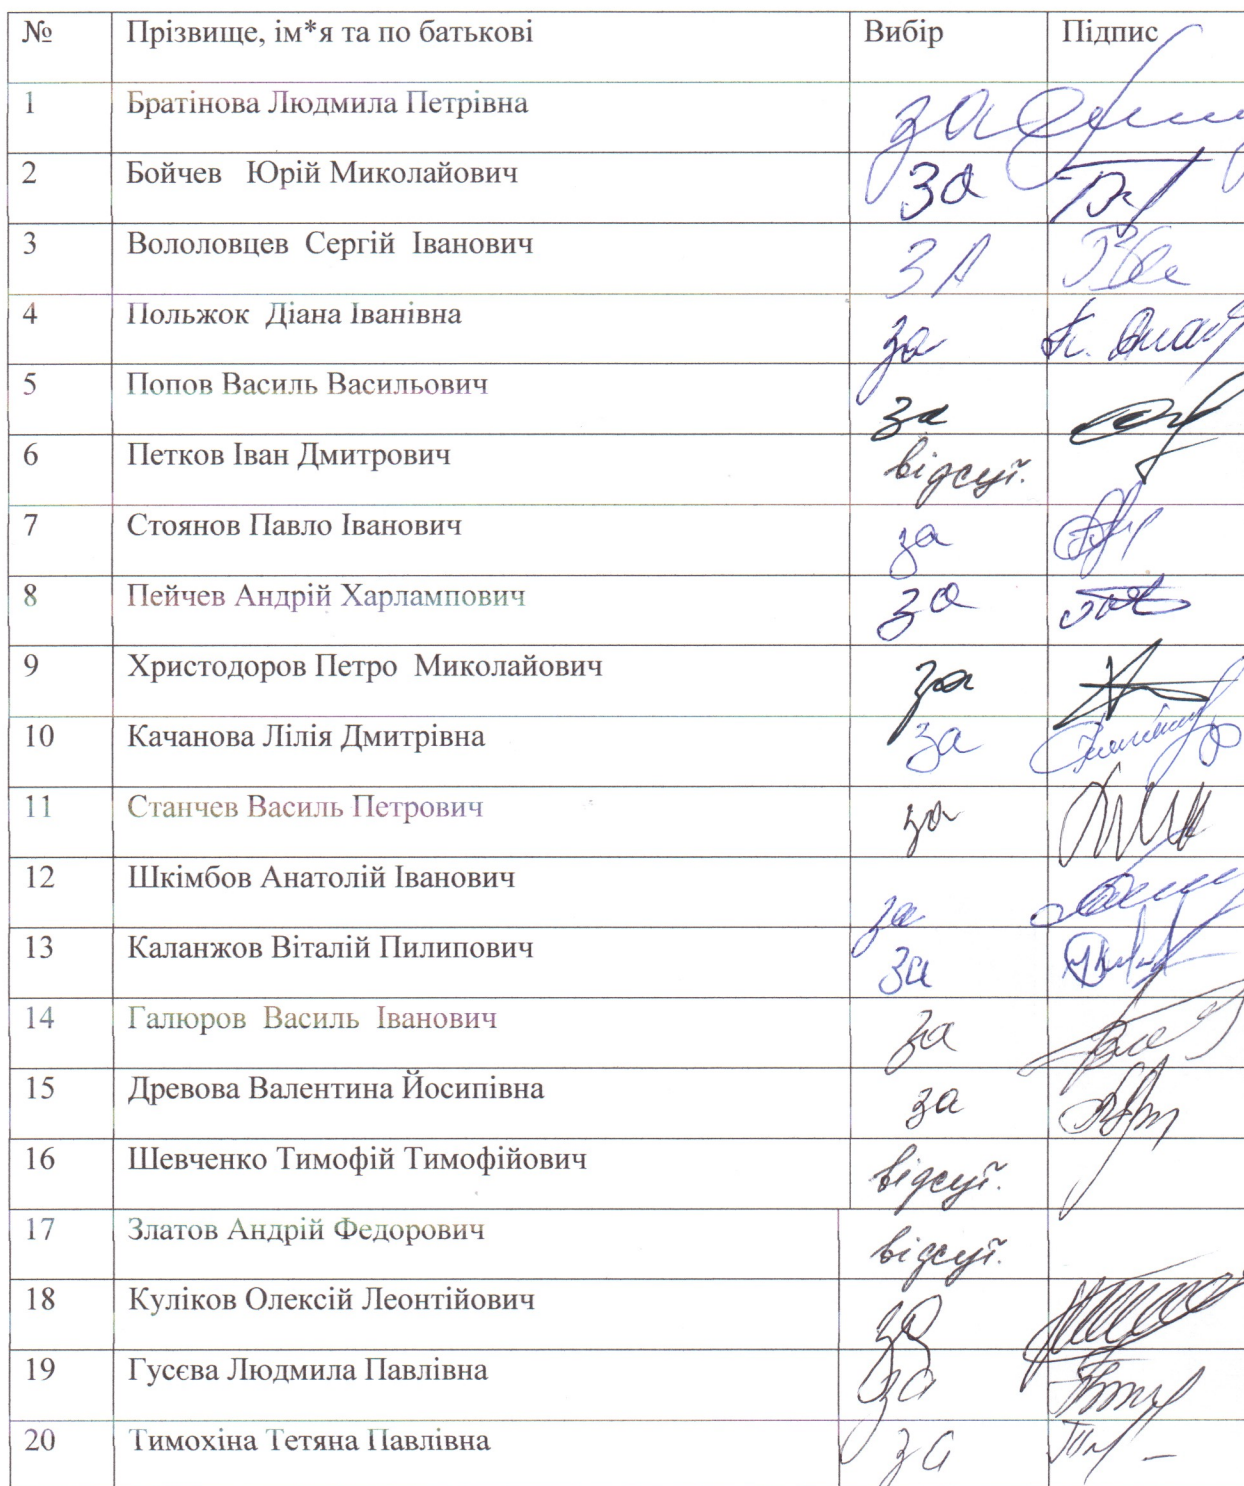 № Прізвище, ім*я та по батькові Вибір Підпис
1 Братінова Людмила Петрівна за
2 Бойчев Юрій Миколайович за
3 Вололовцев Сергій Іванович ЗА
4 Польжок Діана Іванівна за
5 Попов Василь Васильович за
6 Петков Іван Дмитрович відсут.
7 Стоянов Павло Іванович за
8 Пейчев Андрій Харлампович за
9 Христодоров Петро Миколайович за
10 Качанова Лілія Дмитрівна за
11 Станчев Василь Петрович за
12 Шкімбов Анатолій Іванович за
13 Каланжов Віталій Пилипович за
14 Галюров Василь Іванович за
15 Древова Валентина Йосипівна за
16 Шевченко Тимофій Тимофійович відсут.
17 Златов Андрій Федорович відсут.
18 Куліков Олексій Леонтійович за
19 Гусєва Людмила Павлівна за
20 Тимохіна Тетяна Павлівна за